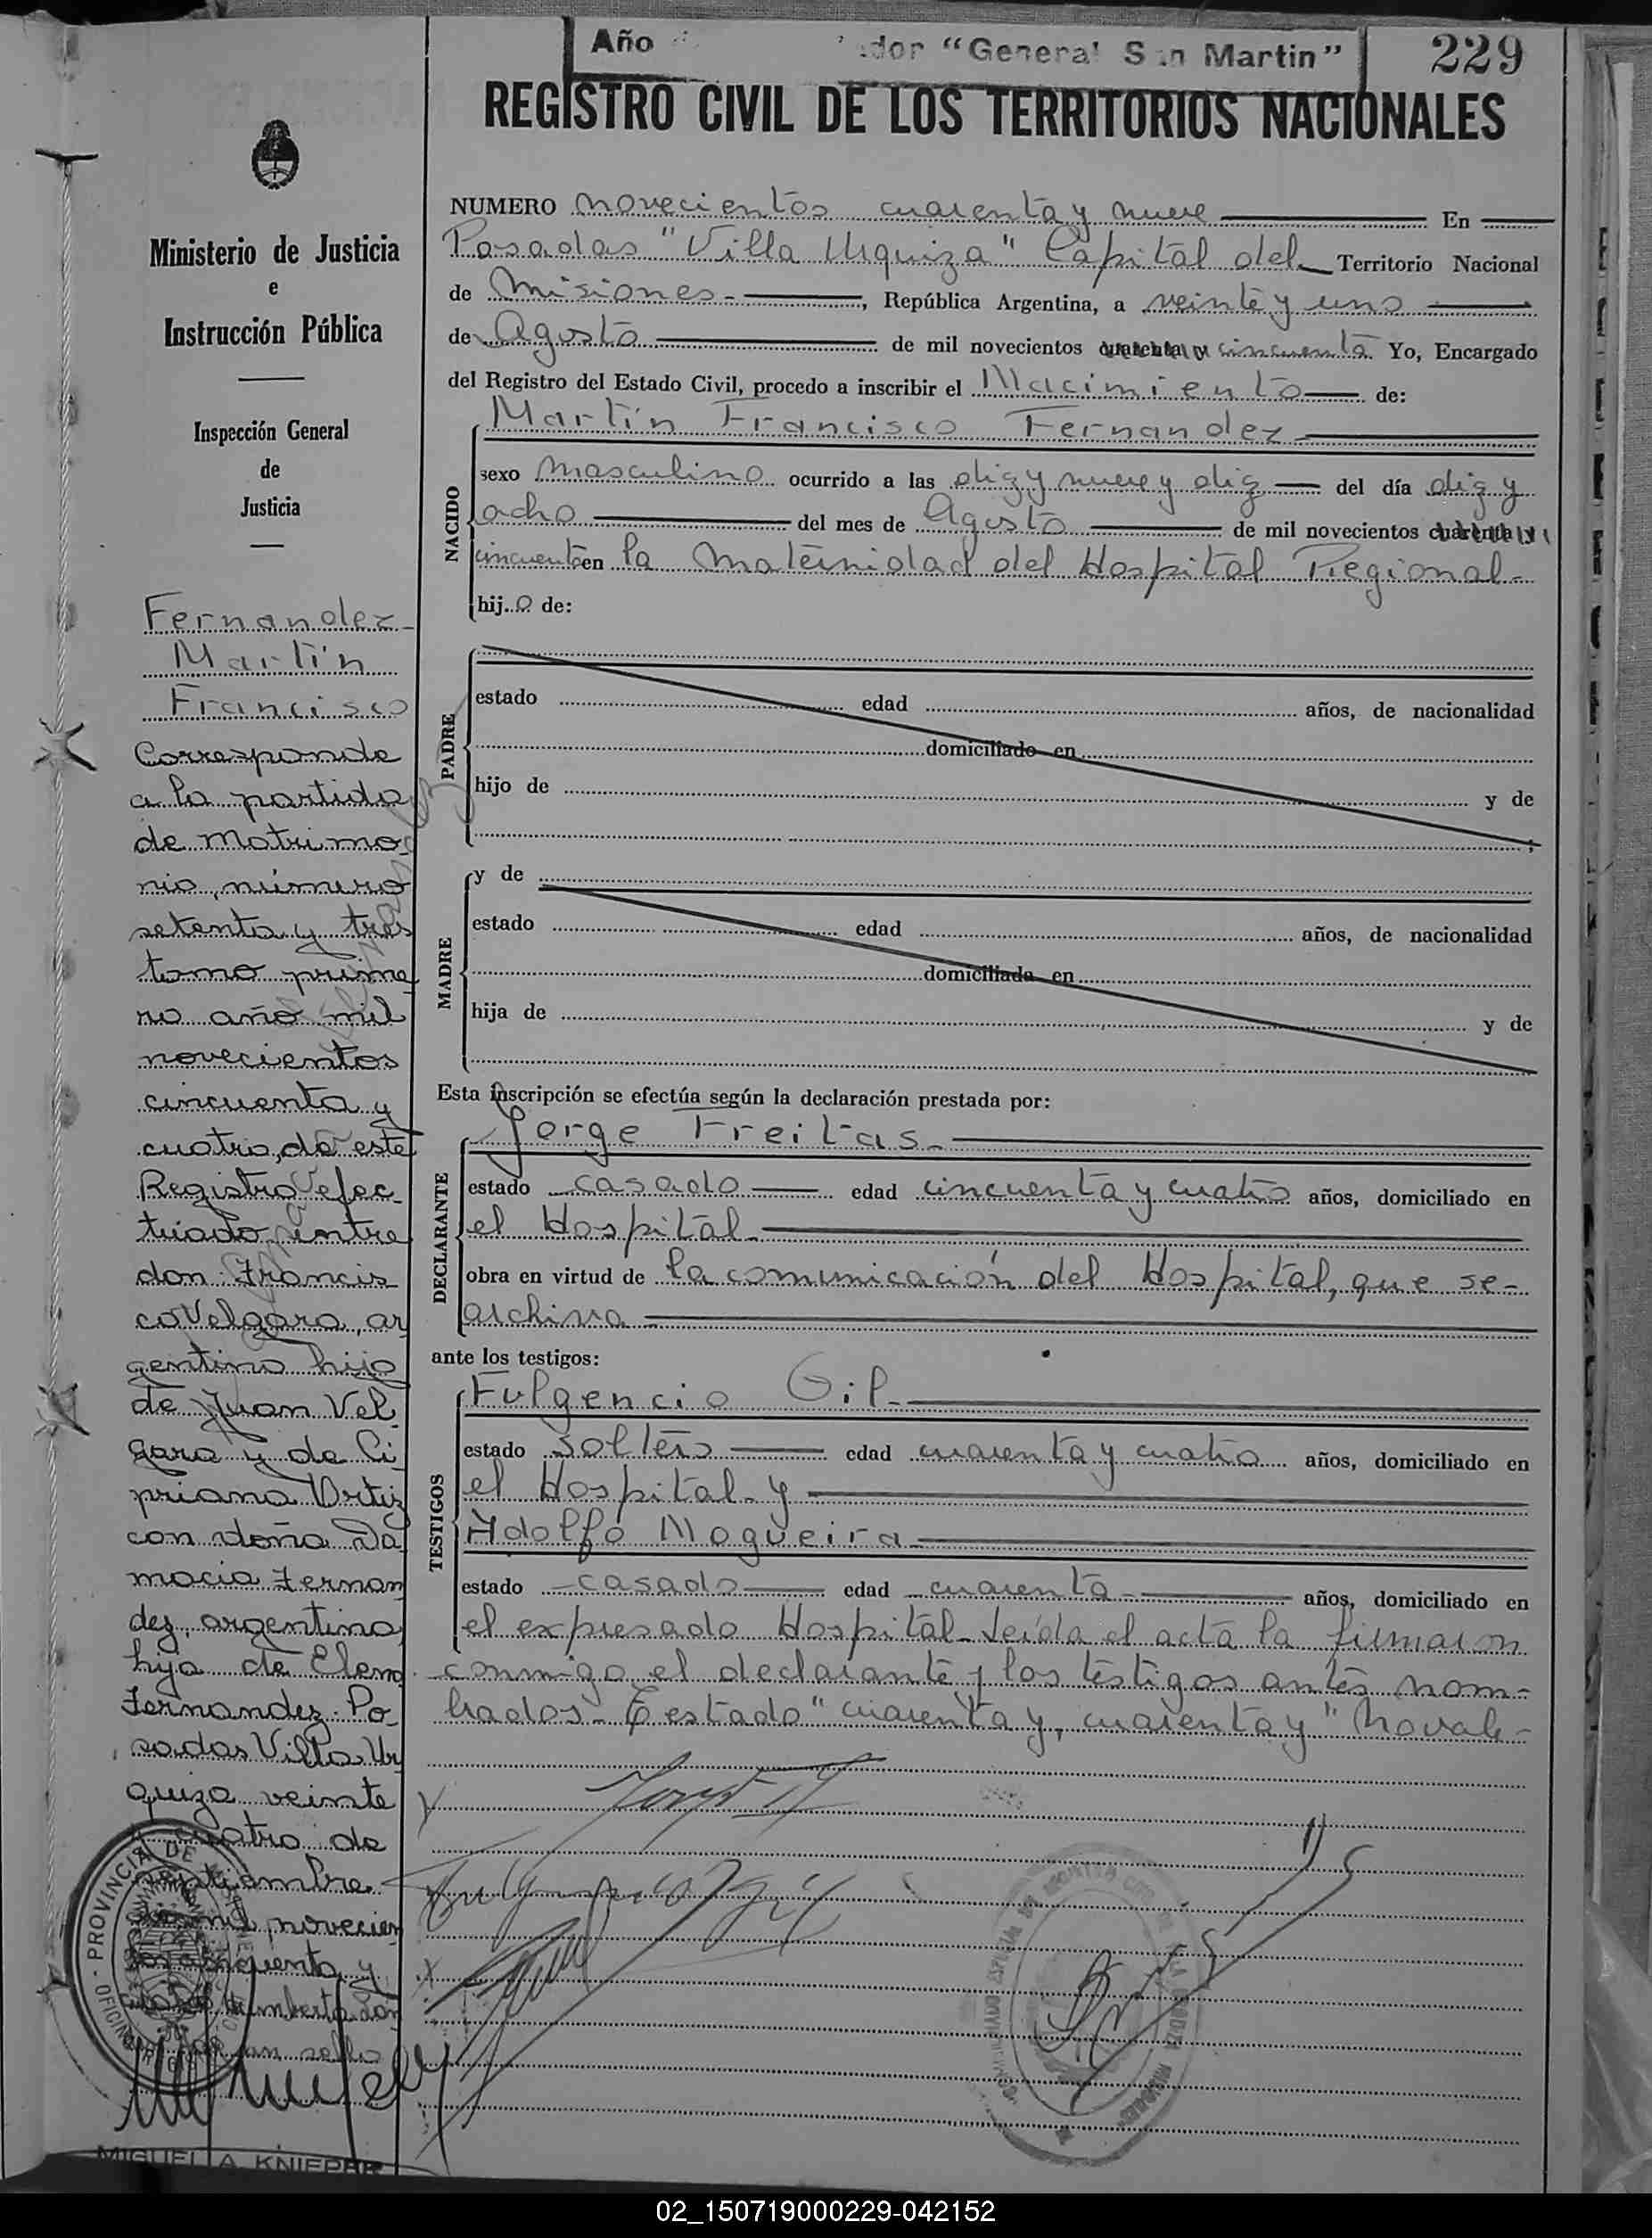 Año dor "General San Martin"
229
REGISTRO CIVIL DE LOS TERRITORIOS NACIONALES
Ministerio de Justicia
e
Instrucción Pública
Inspección General
de
Justicia
NUMERO novecientos cuarenta y nueve En
Posadas "Villa Urquiza" Capital del Territorio Nacional
de Misiones.-, República Argentina, a veinte y uno
de Agosto de mil novecientos cuarenta y cincuenta. Yo, Encargado
del Registro del Estado Civil, procedo a inscribir el Nacimiento de:
Martín Francisco Fernandez
NACIDO
sexo masculino ocurrido a las diez y nueve y diez del día diez y
ocho del mes de Agosto de mil novecientos cuarenta y
cincuenta en la Maternidad del Hospital Regional-
hij.o de:
PADRE
estado edad años, de nacionalidad
domiciliado en
hijo de y de
;
MADRE
y de
estado edad años, de nacionalidad
domiciliada en
hija de y de
Esta inscripción se efectúa según la declaración prestada por:
DECLARANTE
Jorge Freitas.-
estado casado edad cincuenta y cuatro años, domiciliado en
el Hospital.-
obra en virtud de la comunicación del Hospital, que se-
archiva
ante los testigos:
TESTIGOS
Fulgencio Gil.-
estado soltero edad cuarenta y cuatro años, domiciliado en
el Hospital y
Adolfo Nogueira
estado casado edad cuarenta años, domiciliado en
el expresado Hospital.- Leída el acta la firmaron
conmigo el declarante y los testigos antes nom-
brados.- Testado "cuarenta y, cuarenta y" No vale-
Fernandez-
Martín
Francisco
Corresponde
a la partida
de matrimo-
nio, número
setenta y tres
tomo prime-
ro año mil
novecientos
cincuenta y
cuatro, de este
Registro efec-
tuado entre
don Francis-
co Velgara, ar-
gentino hijo
de Juan Vel-
gara y de Ci-
priana Ortiz
con doña Da-
macia Fernan-
dez, argentina,
hija de Elena
Fernandez. Po-
sadas Villa Ur-
quiza veinte
y cuatro de
septiembre
de mil novecien-
tos cincuenta y
PROVINCIA DE
MIGUEL A. KNIEPER
02_150719000229-042152